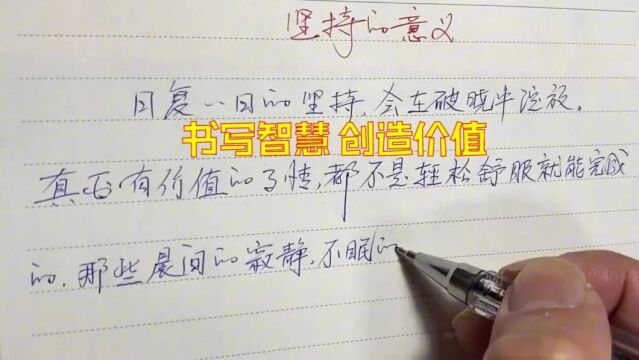 坚持的意义
日复一日的坚持,会在破晓中绽放。
书写智慧 创造价值
真正有价值的事情,都不是轻松舒服就能完成
的,那些晨间的寂静,不眠的